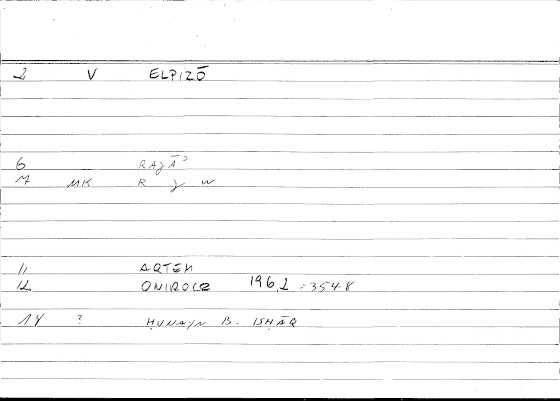 2 V ELPIZŌ
6 RAǧĀʾ
7 MK R ǧ W
11 ARTEM
12 ONIROCR 196,2 = 354.8
14 ? ḤUNAYN B. ISḤĀQ